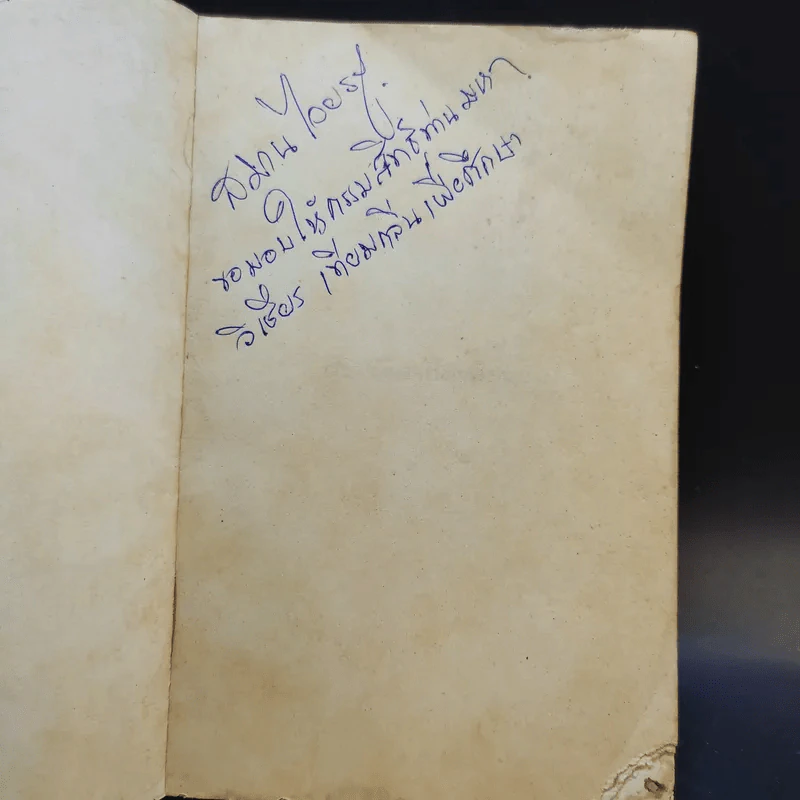 สมาน ไวยรา.
ขอมอบให้กรรมสิทธิ์ท่าน มหา
วิเชียร เทียมกลิ่น เพื่อศึกษา